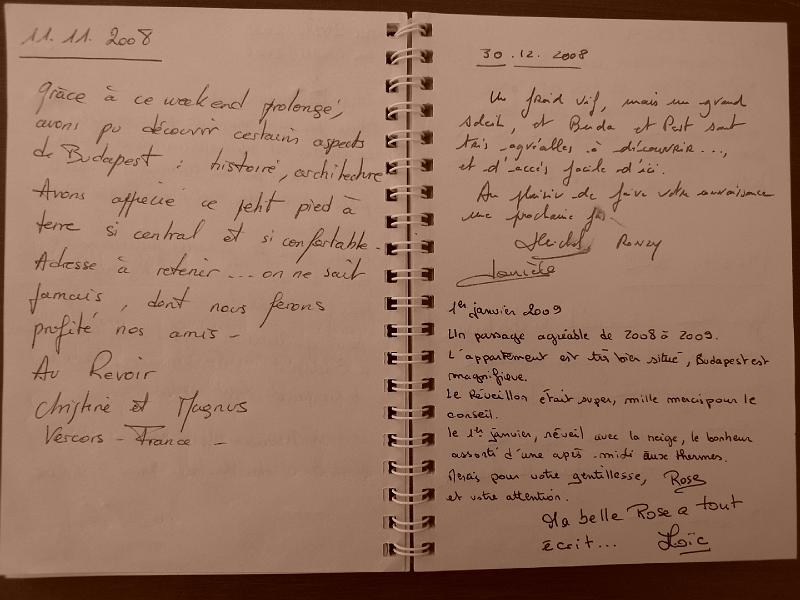 11.11.2008
Grâce à ce weekend prolongé,
avons pu découvrir certains aspects
de Budapest : histoire, architecture
Avons apprécié ce petit pied à
terre si central et si confortable.
Adresse à retenir... on ne sait
jamais, dont nous ferons
profité nos amis -
Au Revoir
Christine et Magnus
Vercors - France -
30.12.2008
Un froid vif, mais un grand
soleil, et Buda et Pest sont
très agréables à découvrir...,
et d'accès facile d'ici.
Au plaisir de faire votre connaissance
une prochaine
Michel
Danièle
1er janvier 2009
Un passage agréable de 2008 à 2009.
L'appartement est très bien situé, Budapest est
magnifique.
Le Réveillon était super, mille merci pour le
conseil.
le 1er janvier, réveil avec la neige, le bonheur
assorti d'une après-midi aux thermes.
Merci pour votre gentillesse, Rose
et votre attention.
Ma belle Rose a tout
écrit... Loïc